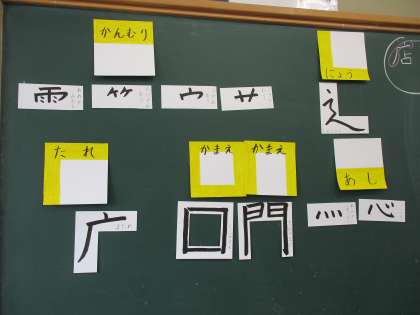 かんむり
にょう
雨 ⺮ 宀 艹
辶
店
たれ
かまえ かまえ
あし
广
囗 門
灬 心